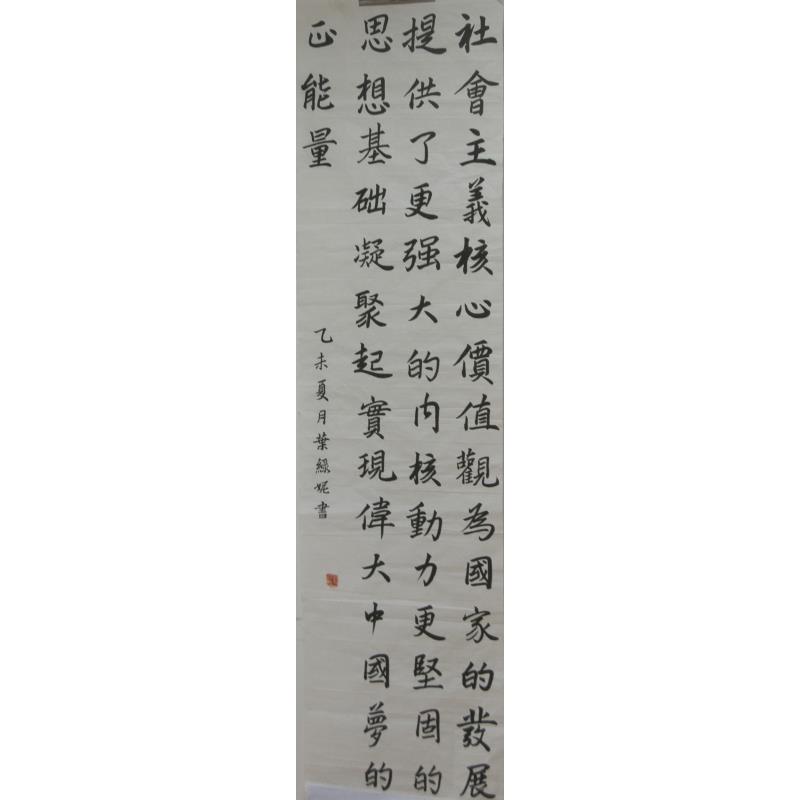 社會主義核心價值觀為國家的發展
提供了更强大的内核動力更堅固的
思想基础凝聚起實現偉大中國夢的
正能量
乙未夏月葉綠妮書